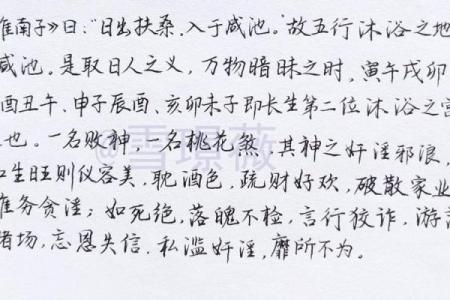 淮南子》曰："日出扶桑，入于咸池。"故五行沐浴之地
咸池。是取日人之义，万物暗昧之时，寅午戌卯
酉丑午、申子辰酉、亥卯未子即长生第二位沐浴之宫
也。一名败神，一名桃花煞，其神之奸淫邪浪，
生旺则仪容美，耽酒色，疏财好欢，破散家业
务贪淫；如死绝，落魄不检，言行狡诈，游
赌场，忘恩失信，私滥奸淫，靡所不为。
@雪璟薇